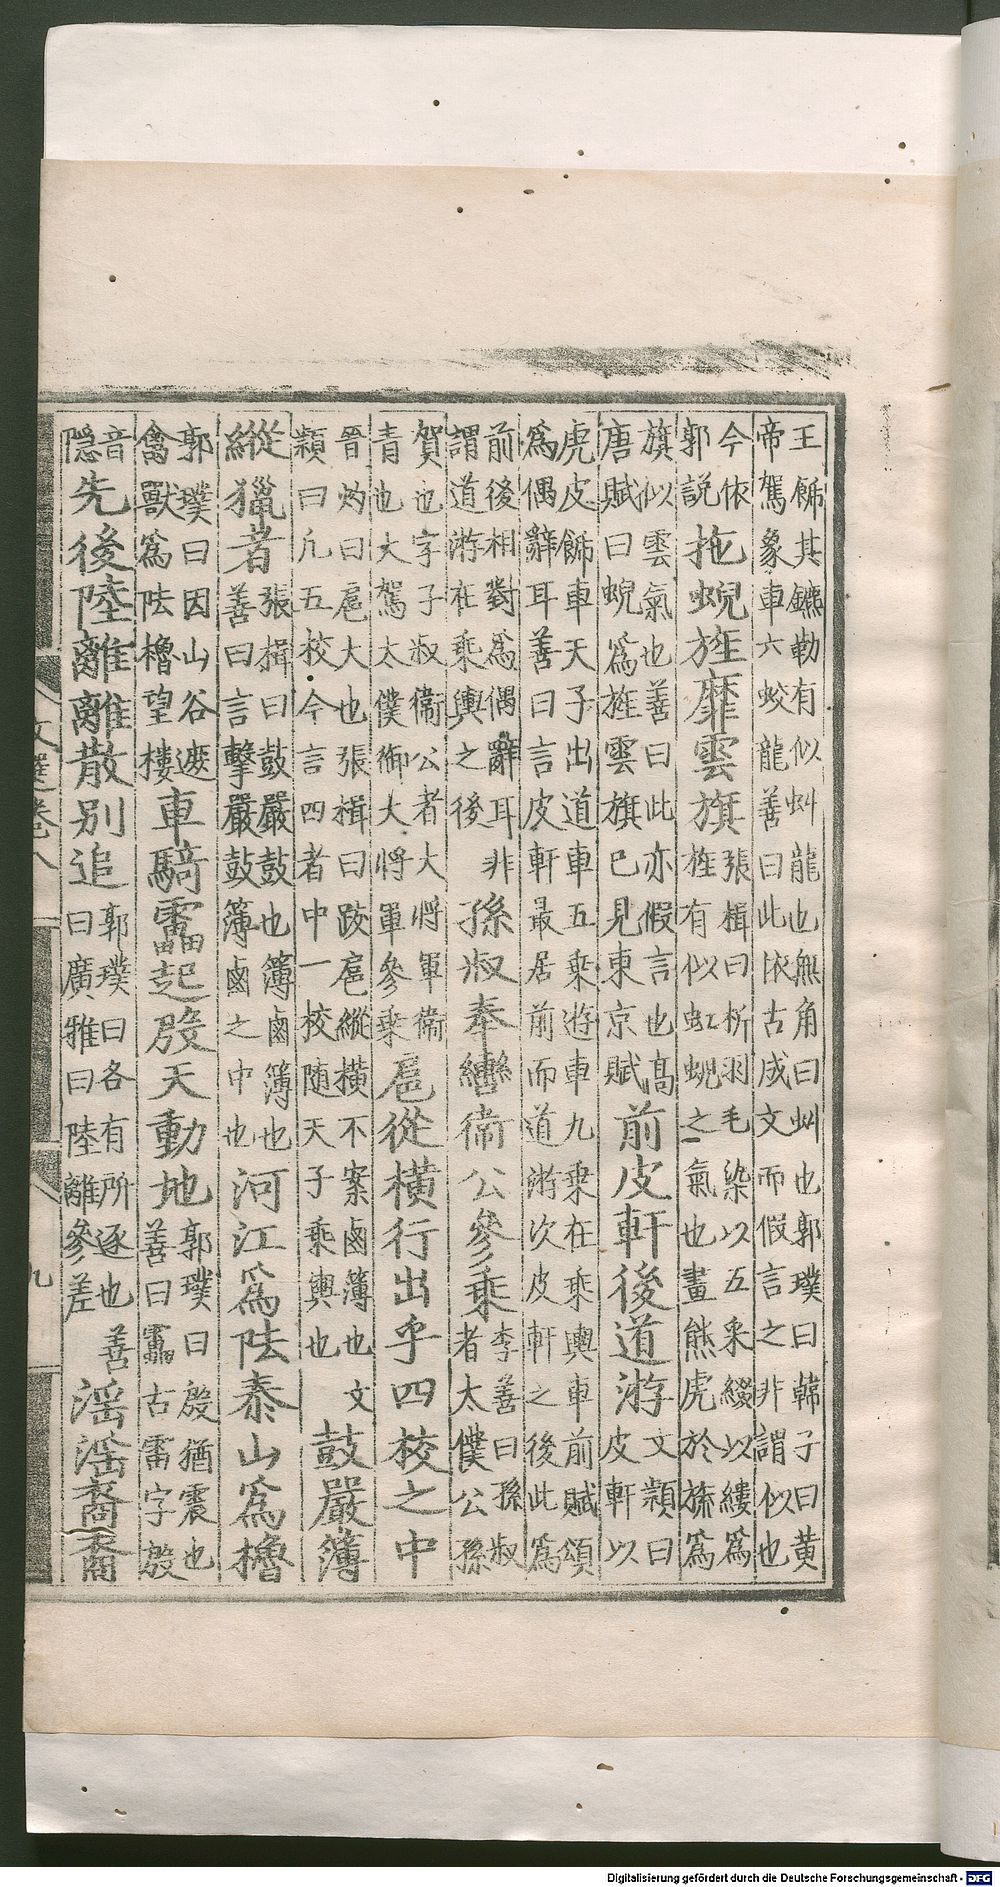 王飾其鑣勒有似虯龍也無角曰虯也郭璞曰韓子曰黄
帝駕象車六蛟龍善曰此依古成文而假言之非謂似也
今依
郭説
拖蜺旌靡雲旗
張揖曰析羽毛染以五采綴以縷爲
旌有似虹蜺之氣也畫熊虎於旒爲
旗似雲氣也善曰此亦假言也高
唐賦曰蜺爲旌雲旗已見東京賦
前皮軒後道游
文頴曰
皮軒以
虎皮飾車天子出道車五乘游車九乘在乘輿車前賦頌
爲偶辭耳善曰言皮軒最居前而道游次皮軒之後此爲
前後相對爲偶辭耳非
謂道游在乘輿之後
孫叔奉轡衞公參乘
李善曰孫叔
者太僕公孫
賀也字子叔衞公者大將軍衞
青也大駕太僕御大將軍參乘
扈從横行出乎四校之中
晉灼曰扈大也張揖曰跋扈縱横不案鹵簿也文
頴曰凢五校今言四者中一校随天子乘輿也
鼓嚴簿
縱獵者
張揖曰鼓嚴鼓也簿鹵簿也
善曰言擊嚴鼓簿鹵之中也
河江爲阹泰山爲櫓
郭璞曰因山谷遮
禽獸爲阹櫓望樓
車騎靁起殷天動地
郭璞曰殷猶震也
善曰靁古雷字殷
音
隠
先後陸離離散别追
郭璞曰各有所逐也善
曰廣雅曰陸離參差
淫淫裔裔
文選卷八
九
Digitalisierung gefördert durch die Deutsche Forschungsgemeinschaft - DFG